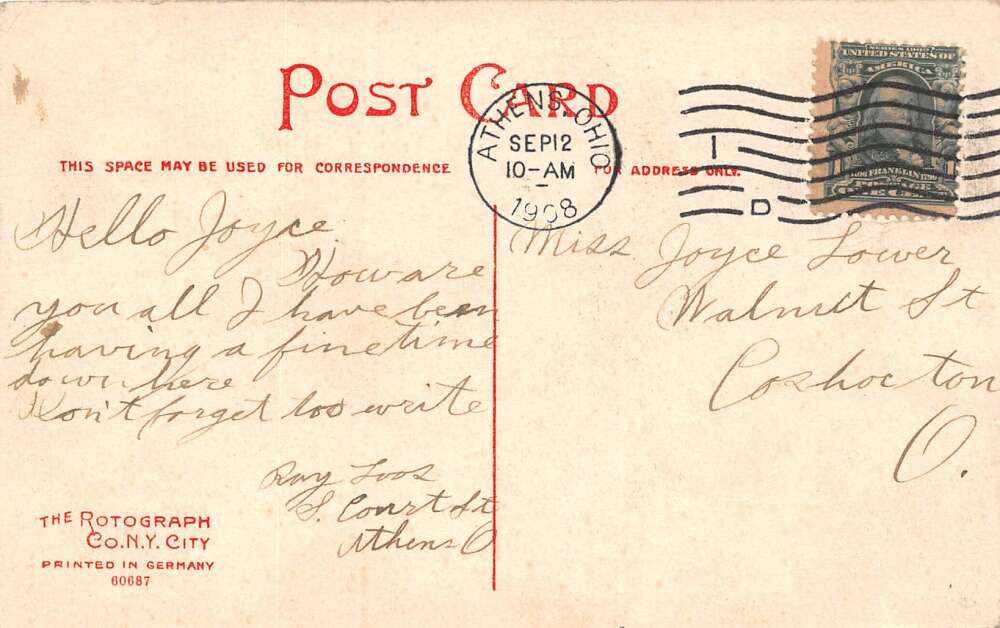 POST CARD
THIS SPACE MAY BE USED FOR CORRESPONDENCE
FOR ADDRESS ONLY.
ATHENS, OHIO
SEP 12
10-AM
1908
1
D
SERIES 1902
UNITED STATES OF
AMERICA
FRANKLIN
POSTAGE
ONE CENT
Hello Joyce
How are
you all I have been
having a fine time
down here
Don't forget too write
Ray Loos
S. Court St
Athens O
Miss. Joyce Lower
Walnut St
Coshocton
O.
THE ROTOGRAPH
CO. N.Y. CITY
PRINTED IN GERMANY
60687